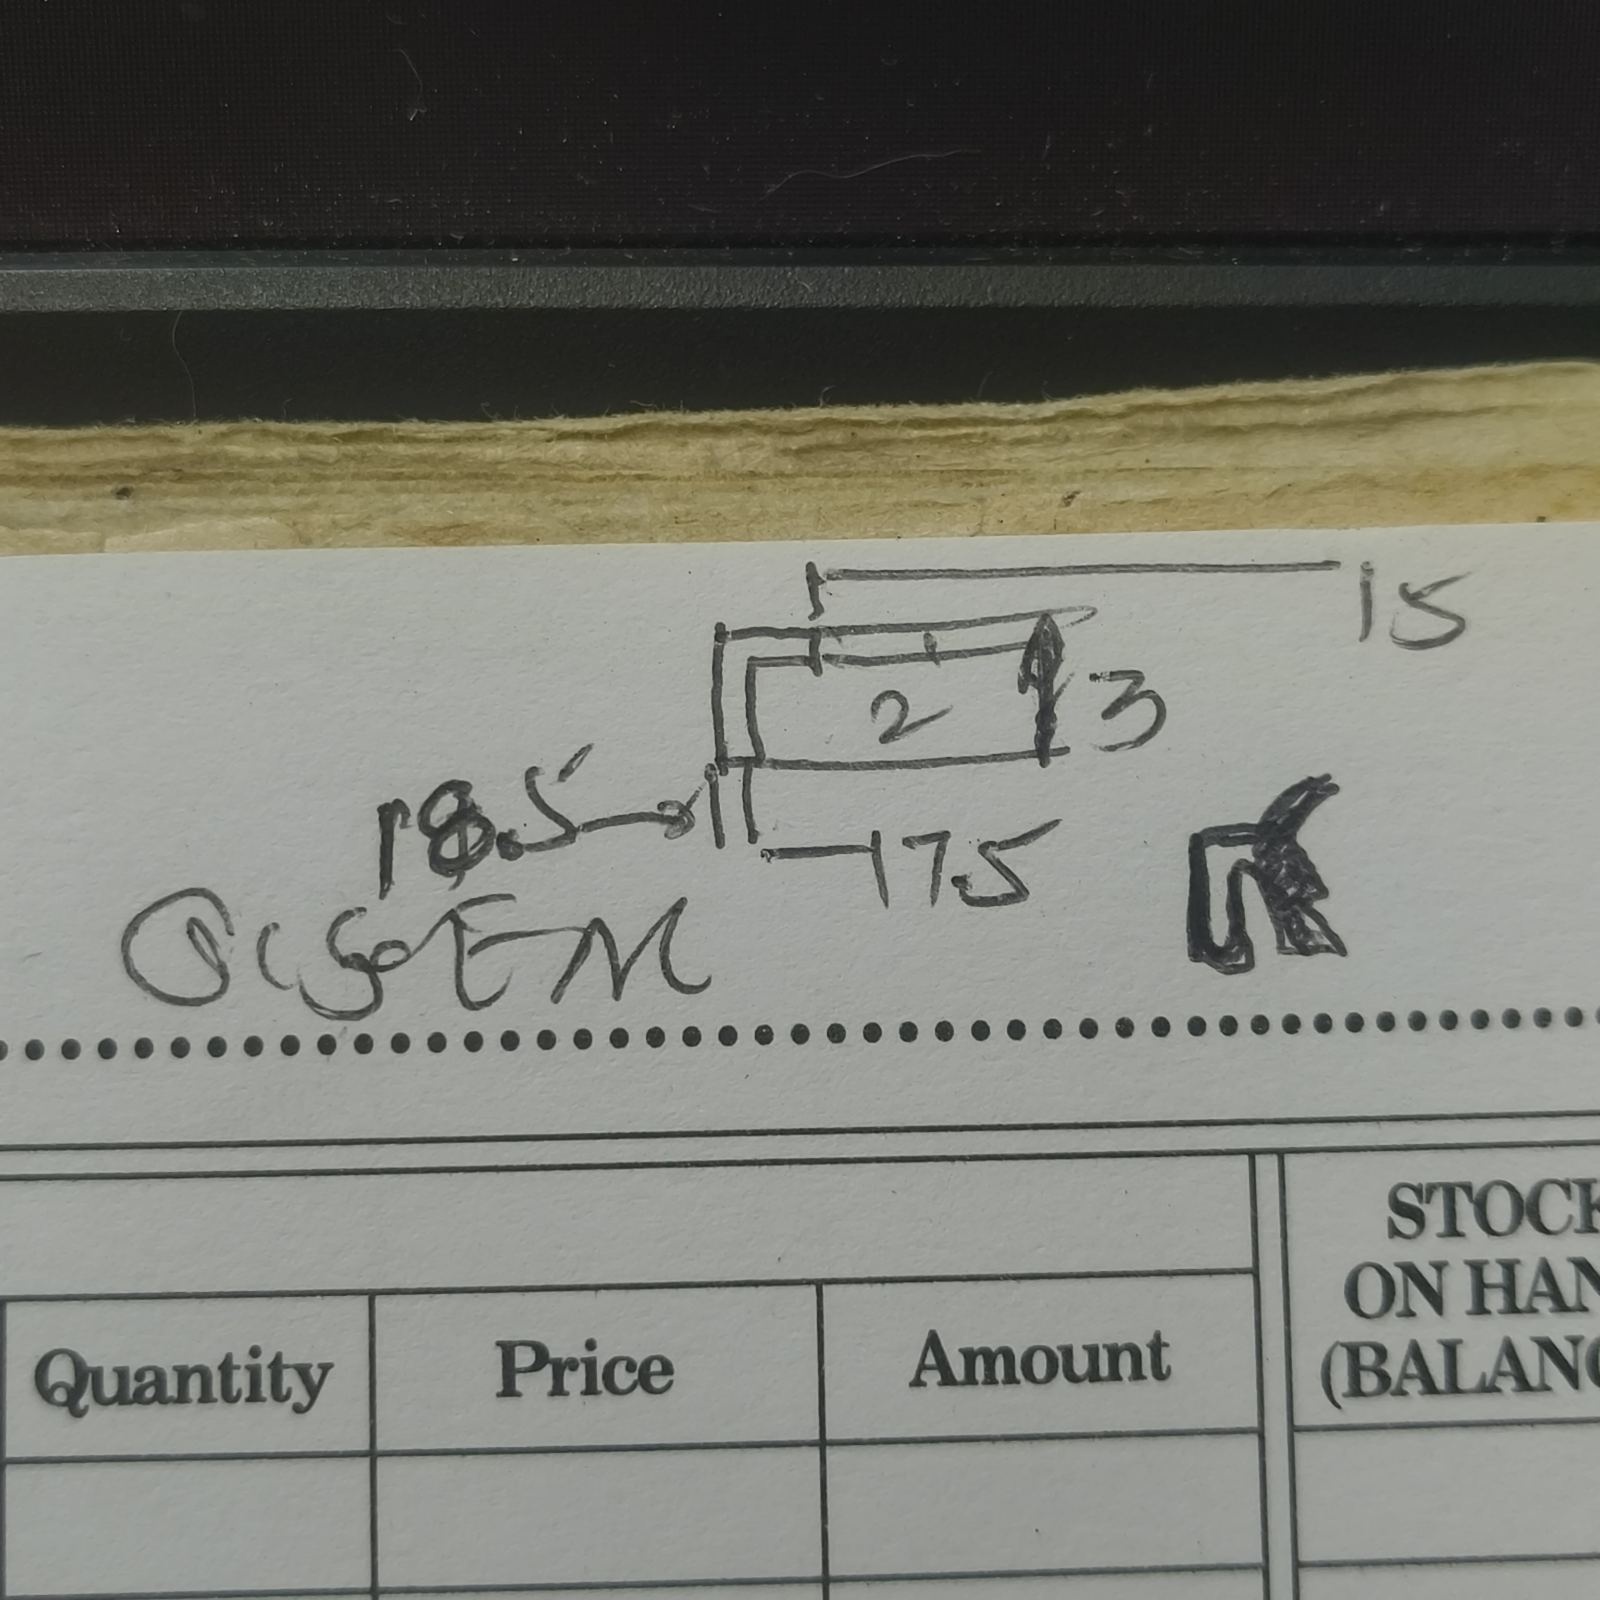 15
2 3
18.5
17.5
Quantity Price Amount
STOCK
ON HAN
(BALANC